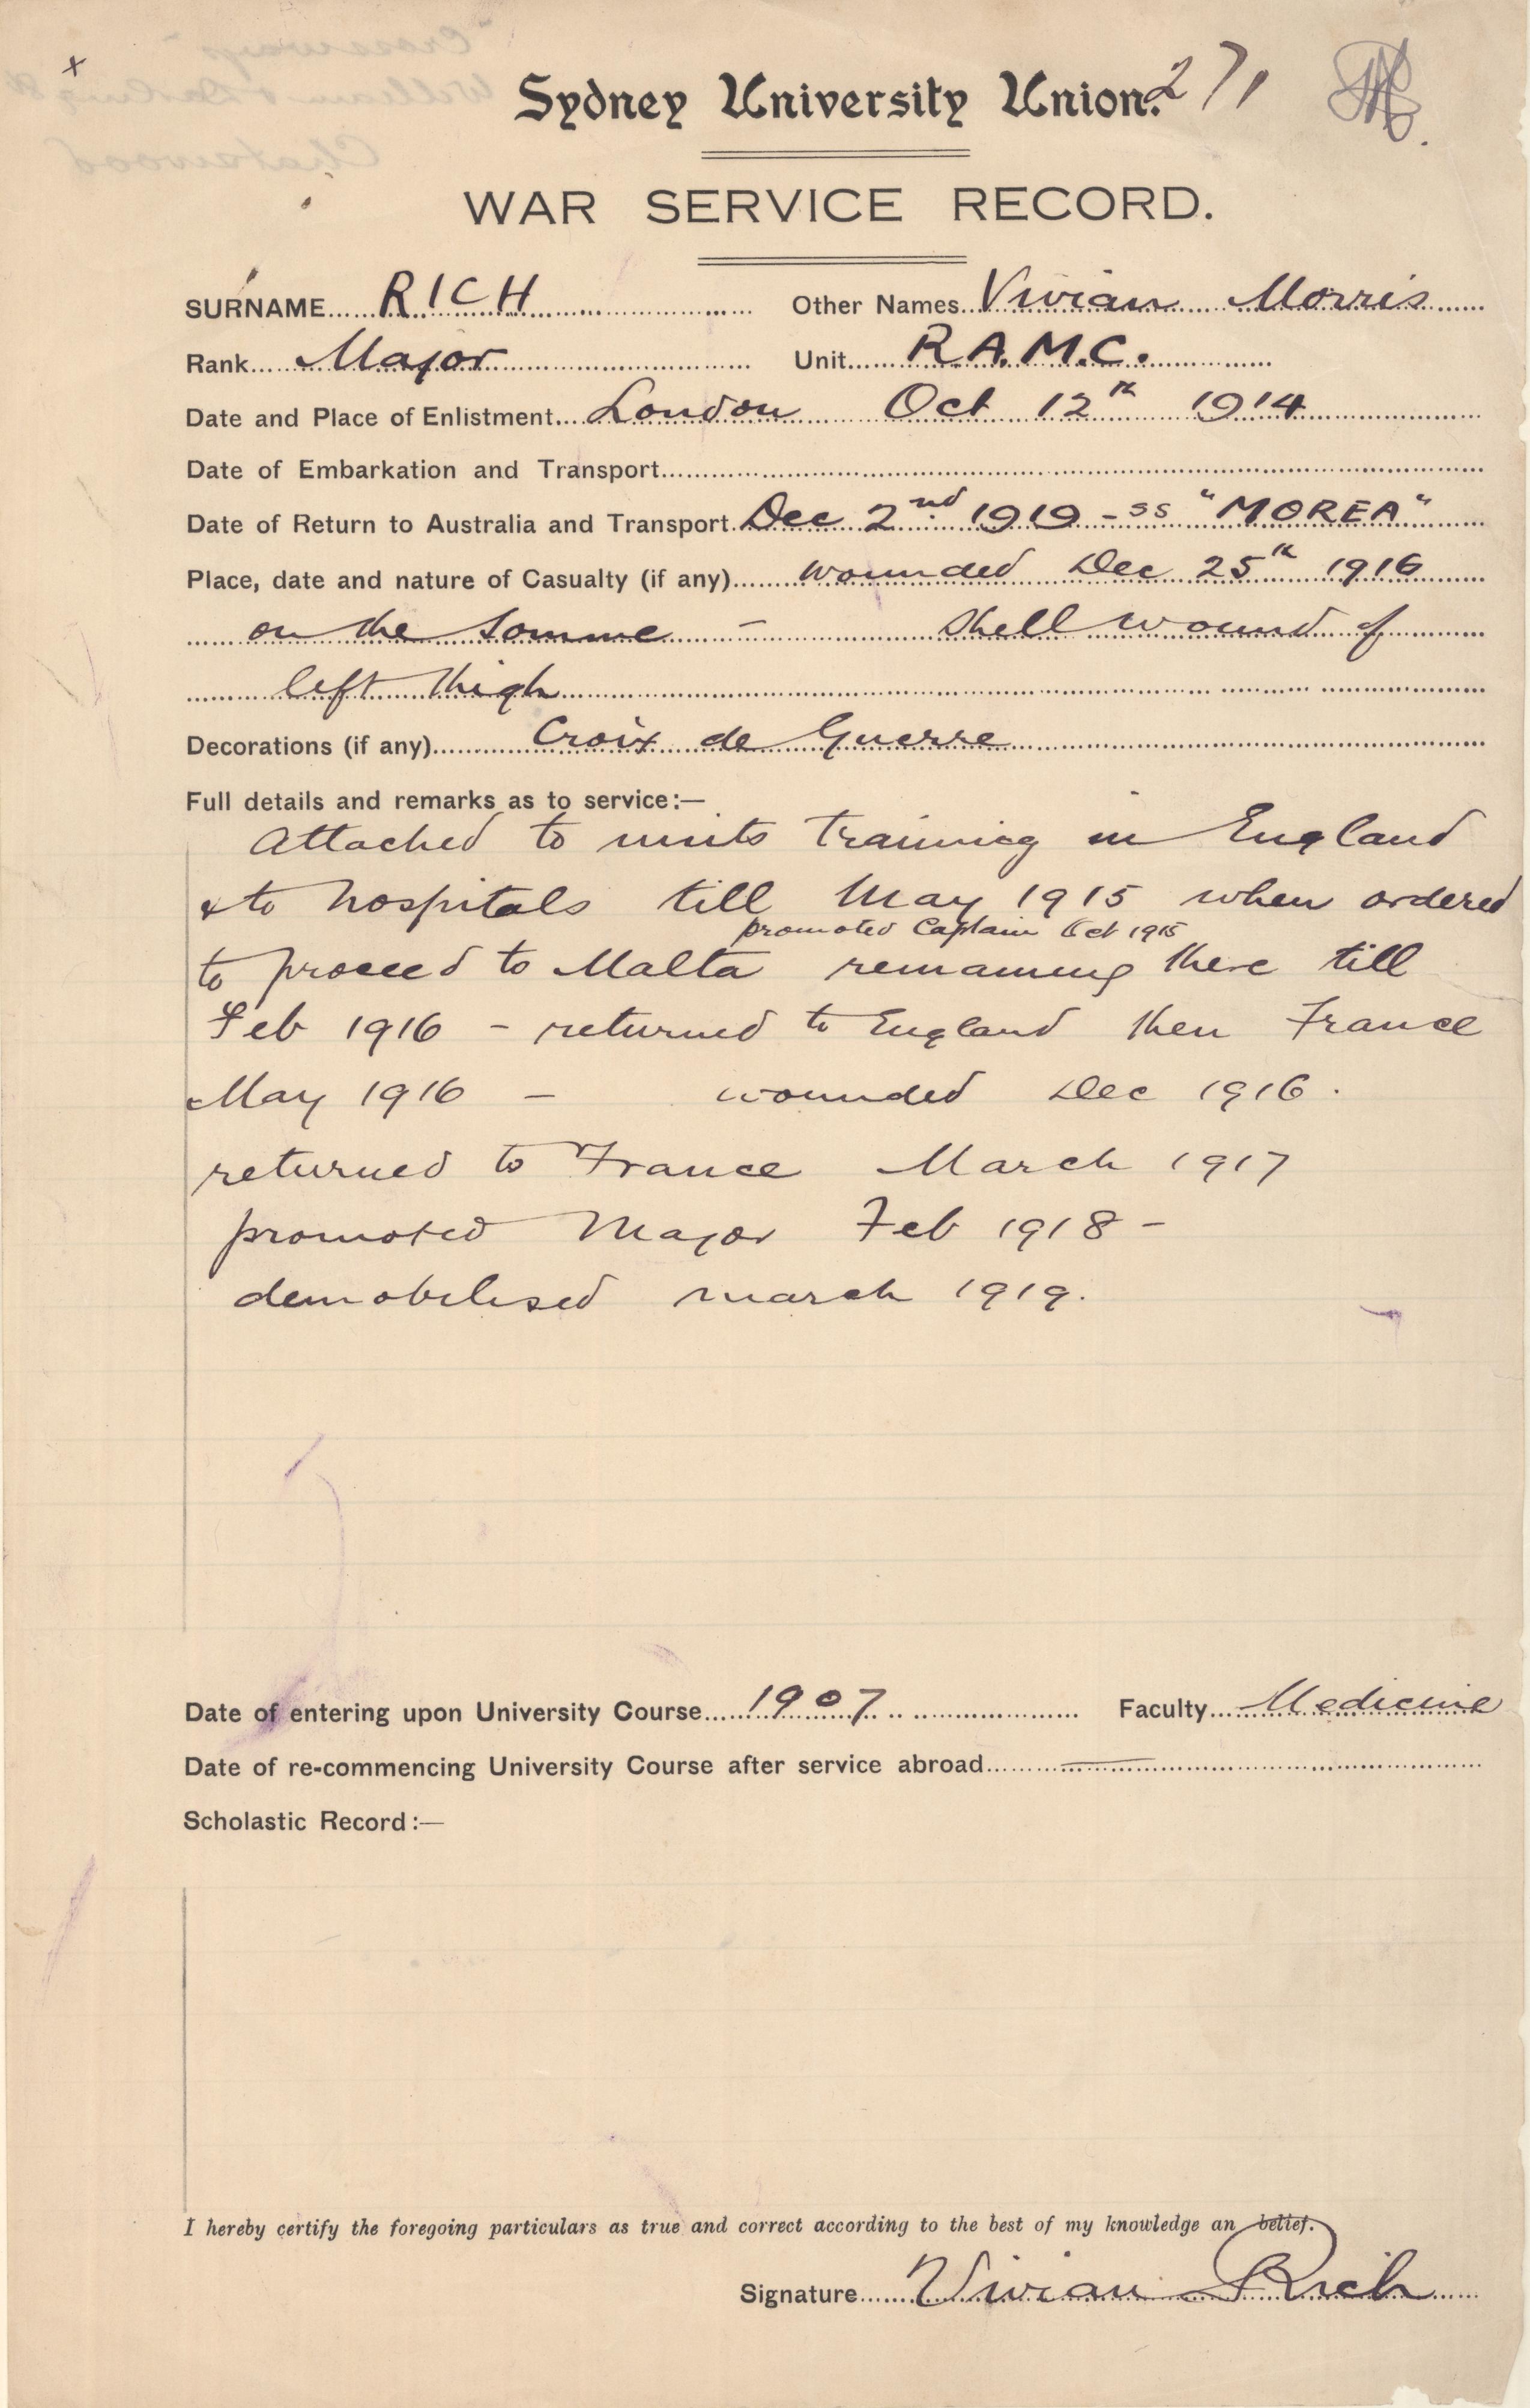 Sydney University Union. 271
WAR SERVICE RECORD.
SURNAME.....RICH Other Names..Vivian Morris
Rank.....Major Unit.....R.A.M.C.
Date and Place of Enlistment...London Oct 12th 1914
Date of Embarkation and Transport
Date of Return to Australia and Transport.Dec 2nd 1919 - ss "MOREA"
Place, date and nature of Casualty (if any)......wounded Dec 25th 1916
on the Somme - Shell wound of
left thigh
Decorations (if any)..........Croix de Guerre
Full details and remarks as to service:—
Attached to units training in England
& to hospitals till May 1915 when ordered
promoted Captain Oct 1915
to proceed to Malta remaining there till
Feb 1916 - returned to England then France
May 1916 - wounded Dec 1916.
returned to France March 1917
promoted Major Feb 1918 -
demobilised march 1919.
Date of entering upon University Course.....1907 Faculty....Medicine
Date of re-commencing University Course after service abroad
Scholastic Record:—
I hereby certify the foregoing particulars as true and correct according to the best of my knowledge an belief.
Signature......Vivian Rich